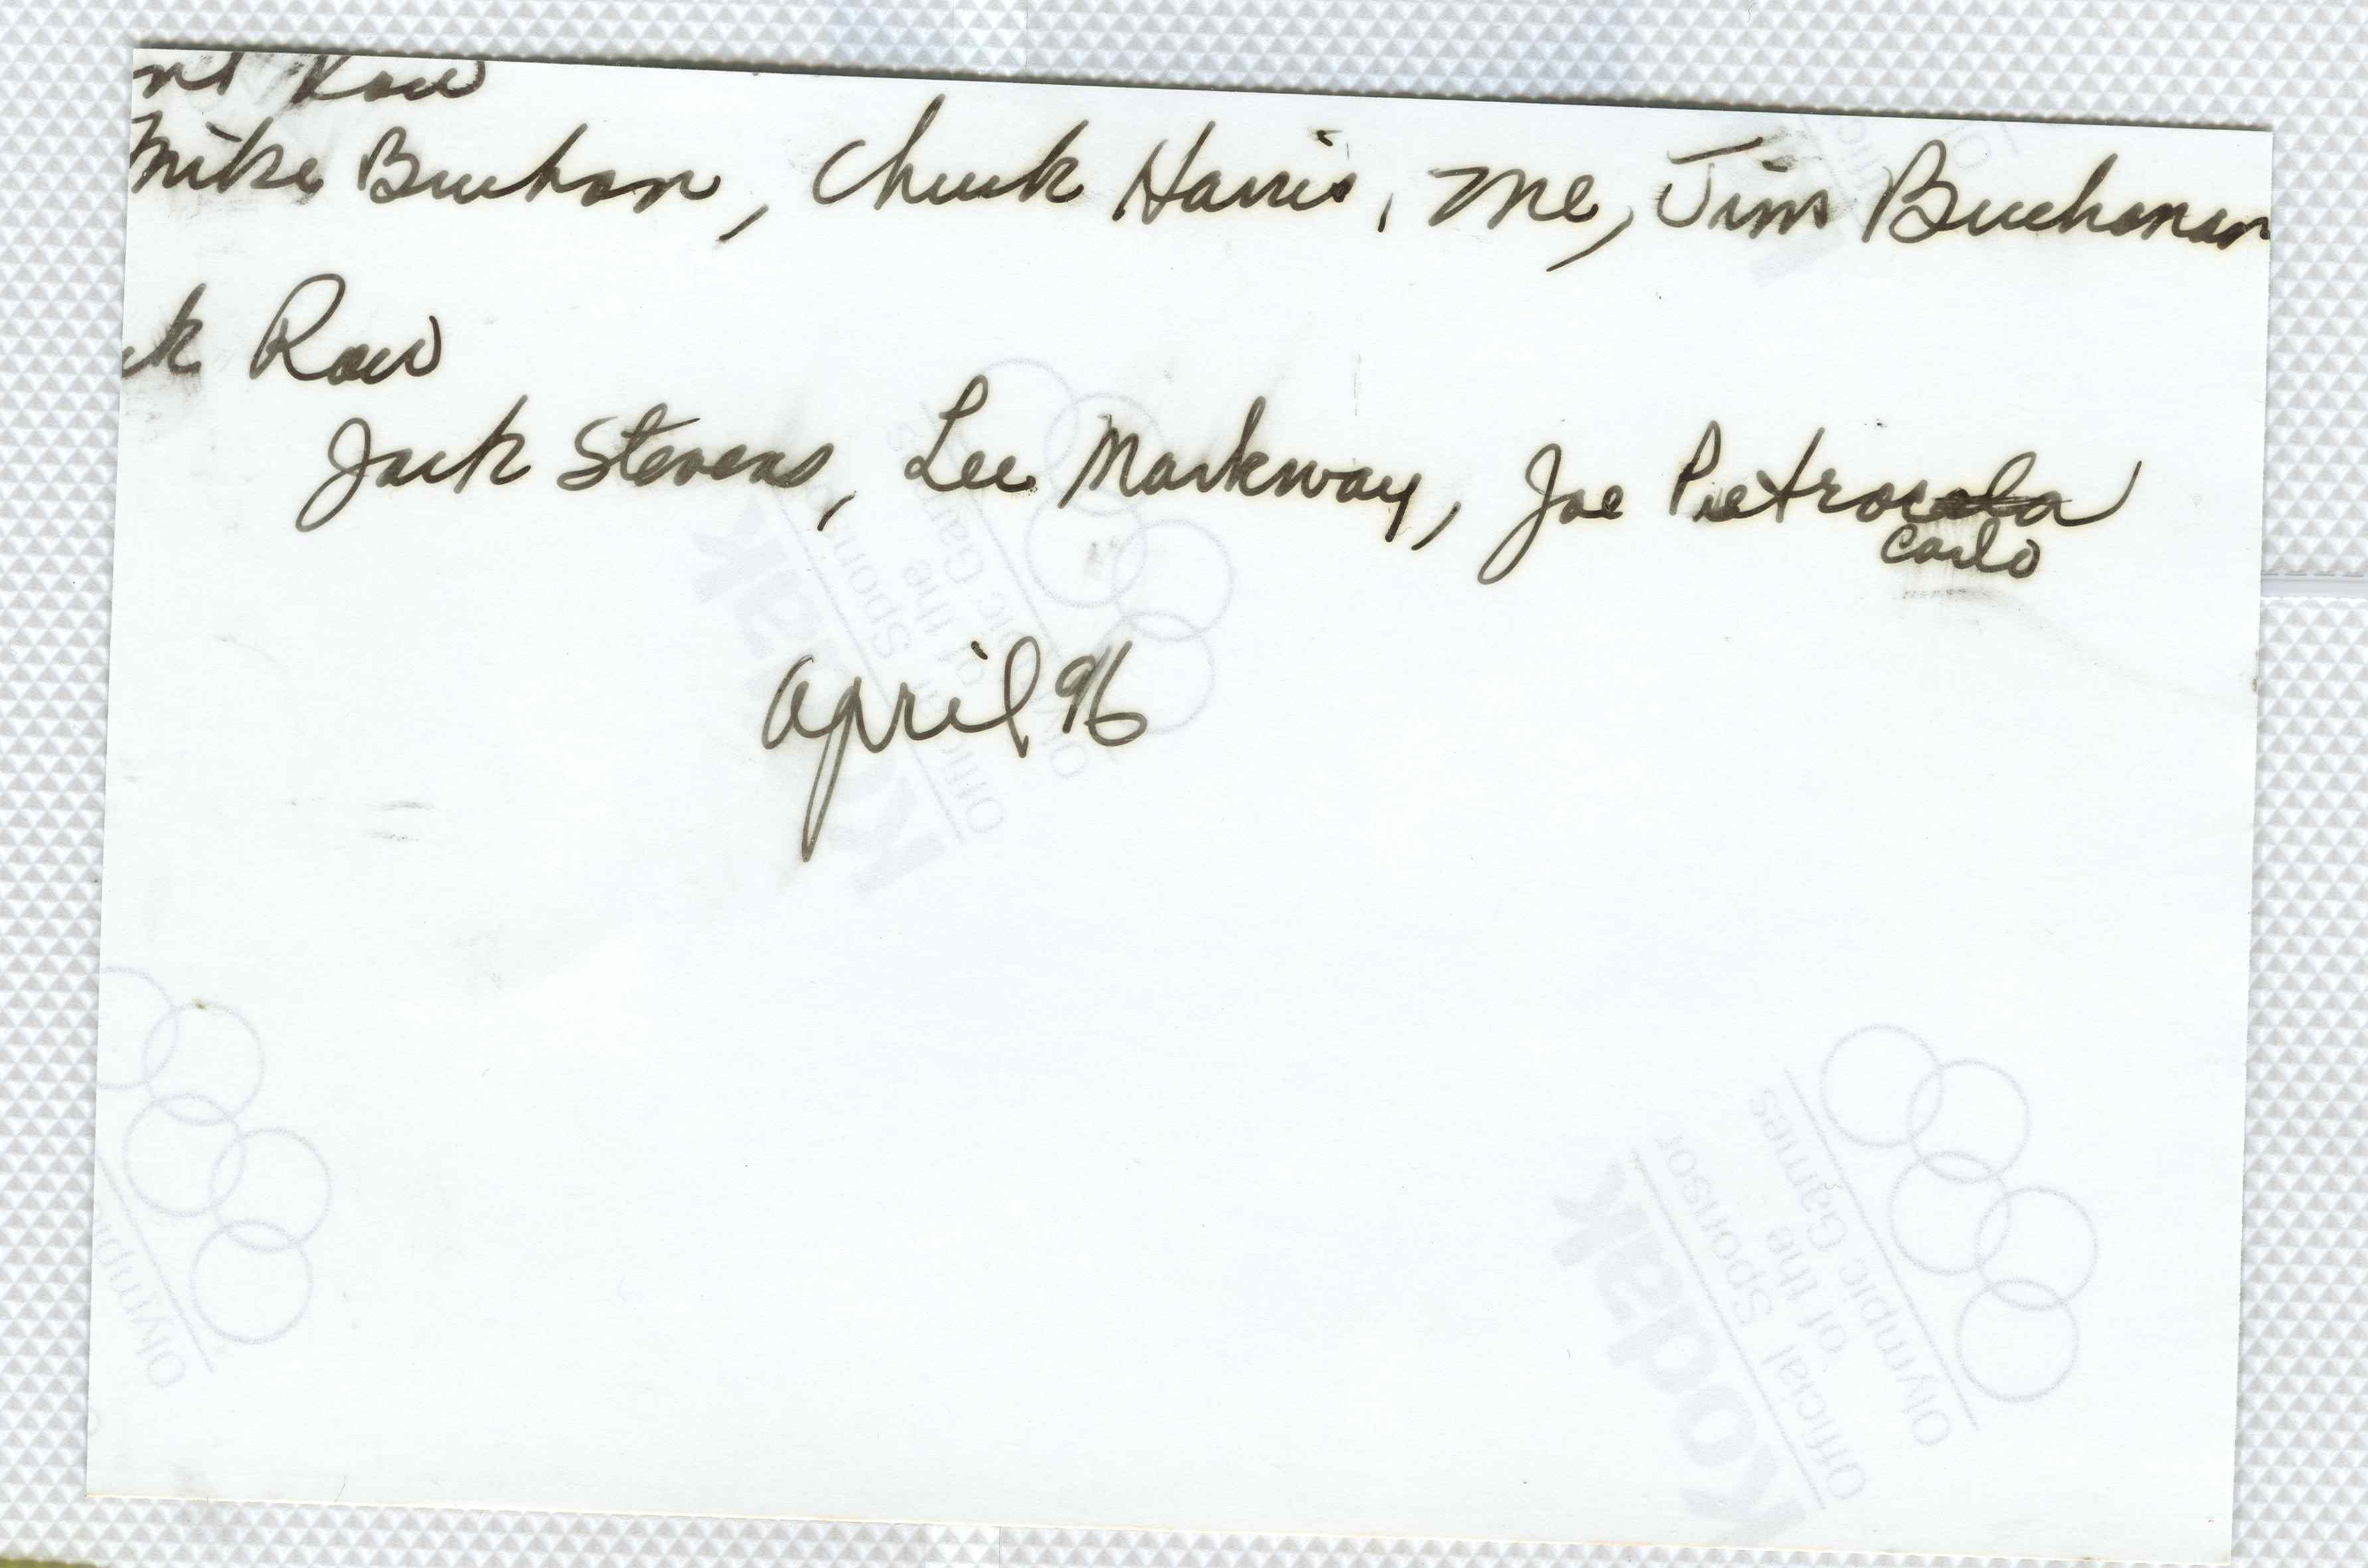 nt Row
Mike Buchan, Chuck Harris, me, Jim Buchanan
ck Row
Jack Stevens, Lee Markway, Joe Pietrocola
Carlo
April 96
Kodak
Official Sponsor
of the
Olympic Games
Kodak
Official Sponsor
of the
Olympic Games
Olympic